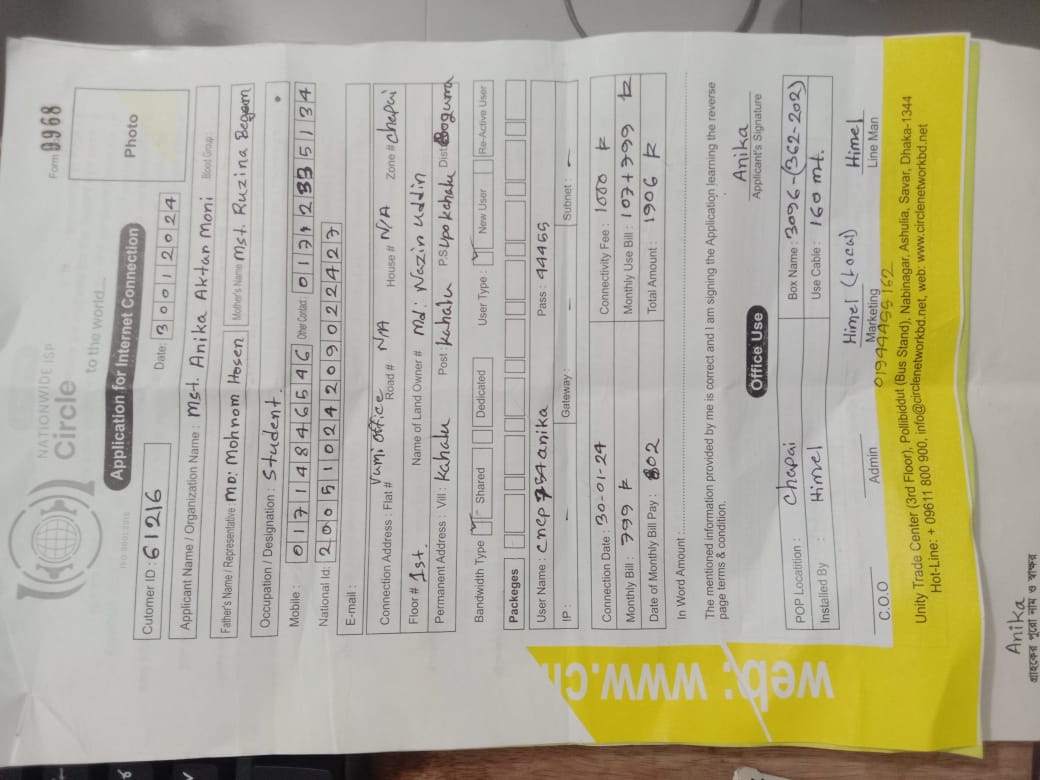 Form 0968
NATIONWIDE ISP
Circle
to the world...
ISO 9001:2015
Application for Internet Connection
Photo
Cutomer ID : 61216
Date: 30012024
Applicant Name / Organization Name : Mst. Anika Aktan Moni
Blood Group
Father's Name / Representative : MD: Mohnom Hosen Mother's Name Mst. Ruzina Begom
Occupation / Designation : Student.
Mobile : 01714846546 Other Contact: 01712335134
National Id: 20051024209022427
E-mail :
Connection Address : Flat # Vumi office Road # N/A House # N/A Zone # Chapai
Floor # 1st. Name of Land Owner # Md: Nazin Uddin
Permanent Address : Vill : Kahalu Post : Kahalu PS Upo Kahalu Dist Bogura
Bandwidth Type Shared Dedicated User Type : New User Re-Active User
Packeges
User Name : cncp754anika Pass : 44455
IP : - Gateway: - Subnet : -
Connection Date : 30-01-24 Connectivity Fee : 1000 ৳
Monthly Bill : 799 ৳ Monthly Use Bill : 107+799 ৳
Date of Monthly Bill Pay : 02 Total Amount : 1906 ৳
In Word Amount :
The mentioned information provided by me is correct and I am signing the Application learning the reverse
page terms & condition.
Anika
Applicant's Signature
Office Use
POP Locatition : Chapai Box Name : 3096-(362-202)
Installed By : Himel Use Cable : 160 mt.
Himel (Local) Himel
C.O.O Admin Marketing Line Man
01944455162
Unity Trade Center (3rd Floor), Pollibiddut (Bus Stand), Nabinagar, Ashulia, Savar, Dhaka-1344
Hot-Line: + 09611 800 900, info@circlenetworkbd.net, web: www.circlenetworkbd.net
web: www.cir
Anika
গ্রাহকের পুরো নাম ও স্বাক্ষর